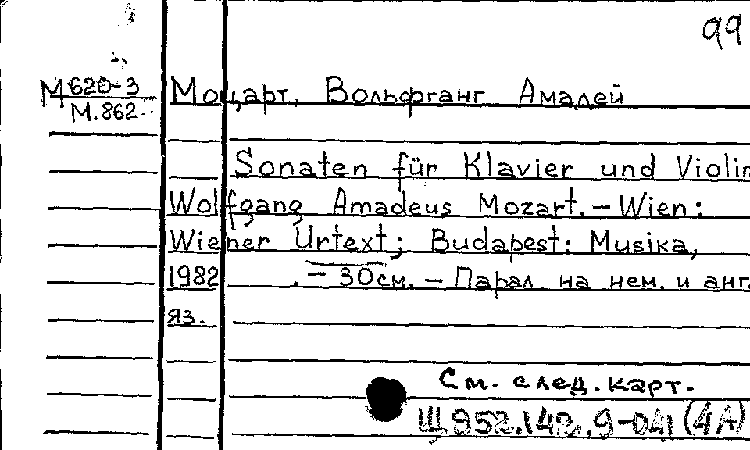 99
М620-3
М.862
Моцарт, Вольфганг Амадей
Sonaten für Klavier und Violin
Wolfgang Amadeus Mozart. – Wien:
Wiener Urtext; Budapest: Musika,
1982. – 30см. – Парал. на нем. и анг
яз.
См. след. карт.
Щ952.142.9-041(4А)